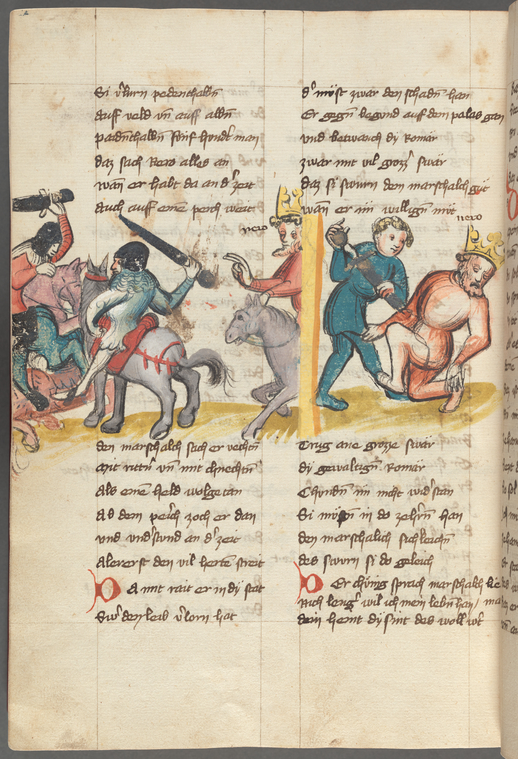 Si v'lurn pedenthalbn
Auff veld vn auff albn
paidnthalbn fünf hundt man
daz sach Nero alles an
wan er habt da an d' zeit
Auch auff eine perch weit
nero
den marschalch sach er vechtn
Mit rittn vn mit chnechtn
Als eine held wolgetan
Ab dem perch zoch er dan
vnd vnd'stund an d' zeit
Alererst den vil herten streit
Damit rait er in dy stat
Sw' den leib v'lorn hat
d' müst zwar den schadn han
Er gegn begund auf den palas gan
vnd betwanch dy Romar
zwar mit vil grozz' swar
daz si swurn dem marschalch
wan er im willign mit
nero
Trug ane grozze swar
dy gewaltign Romar
Chundn im nicht wid'stan
Si in do
den marschalch sich leichn
des swurn si do geleich
Der chünig sprach marschalch
Nich leng' wil ich mein lebn han
dein hent dy sint des woll w't